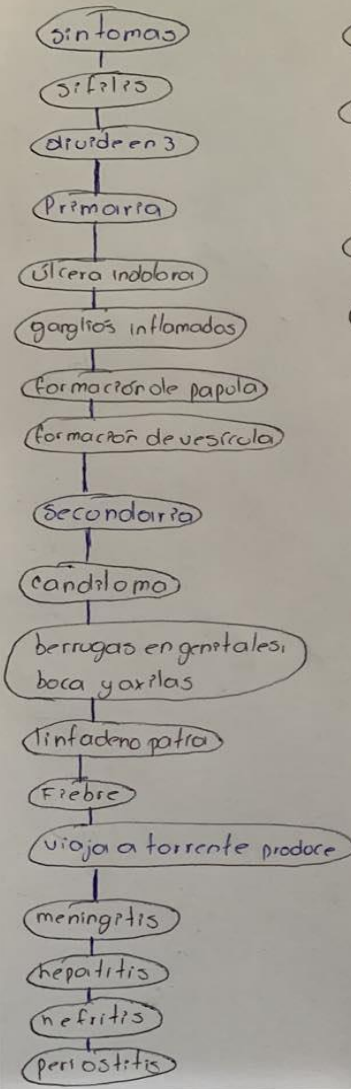 sintomas
sifilis
divide en 3
Primaria
Úlcera indolora
ganglios inflamados
formación de papula
formación de vesícula
Secondaria
candiloma
berrugas en genitales,
boca y axilas
linfadenopatia
Fiebre
viaja a torrente produce
meningitis
hepatitis
nefritis
periostitis